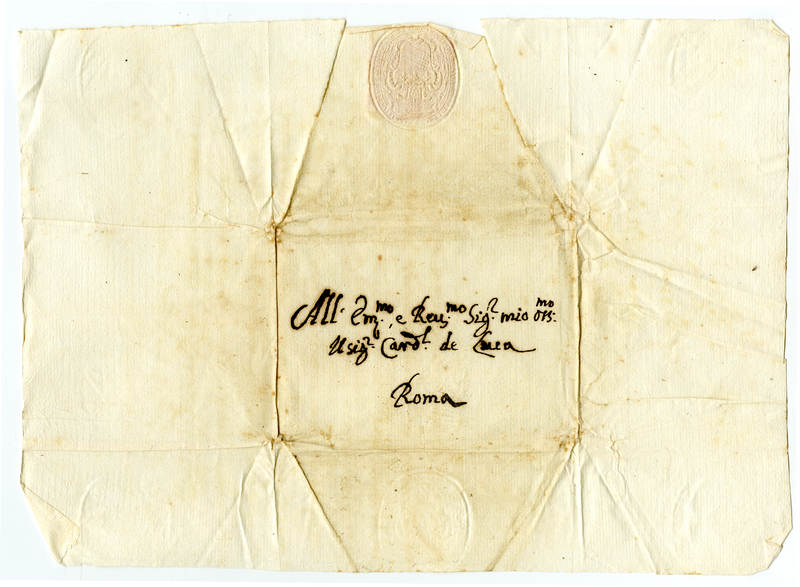 All' Em.mo, e Reu.mo Sig.r mio Oss.mo
Il Sig.r Card.l de Luca
Roma